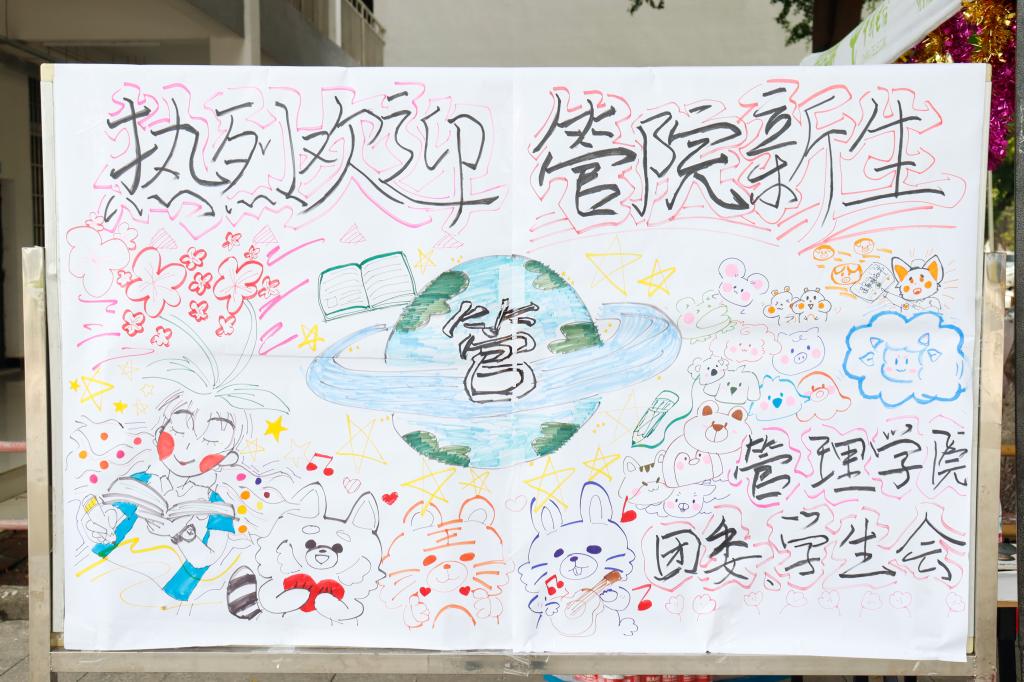 热列欢迎 管院新生
管
管理学院
团委、学生会